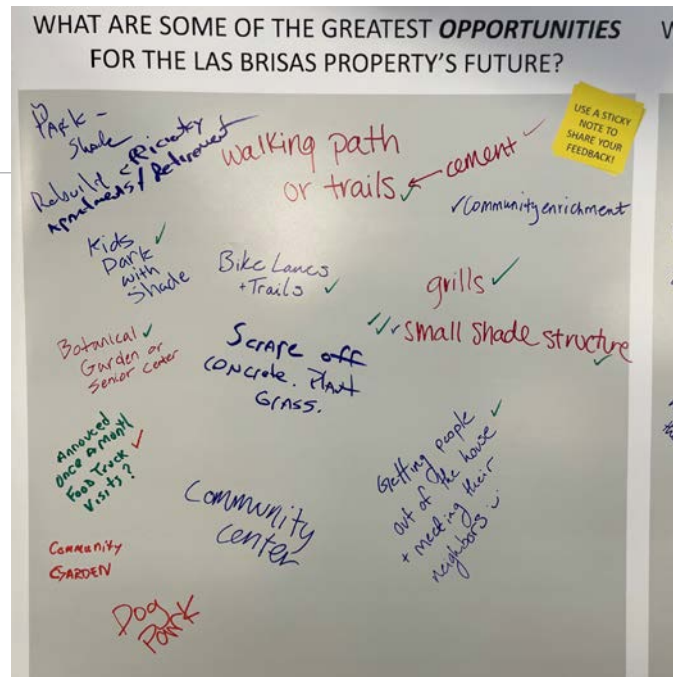 WHAT ARE SOME OF THE GREATEST OPPORTUNITIES
FOR THE LAS BRISAS PROPERTY'S FUTURE?
W
USE A STICKY
NOTE TO
SHARE YOUR
FEEDBACK!
PARK -
Shade
Rebuild efficiency
Apartments / Retirement
walking path
or trails ← cement ✓
✓
✓ Community enrichment
Kids ✓
Park
with
Shade
Bike Lanes
+ Trails ✓
grills ✓
✓✓✓ small shade structure
✓
Botanical ✓
Garden or
Senior Center
Scrape off
CONCRETE. Plant
GRASS.
Annouced
Once A Month
Food Truck ✓
Visits?
Getting people ✓
out of the house
+ meeting their
neighbors :)
Community
Center
Community
GARDEN
Dog
Park